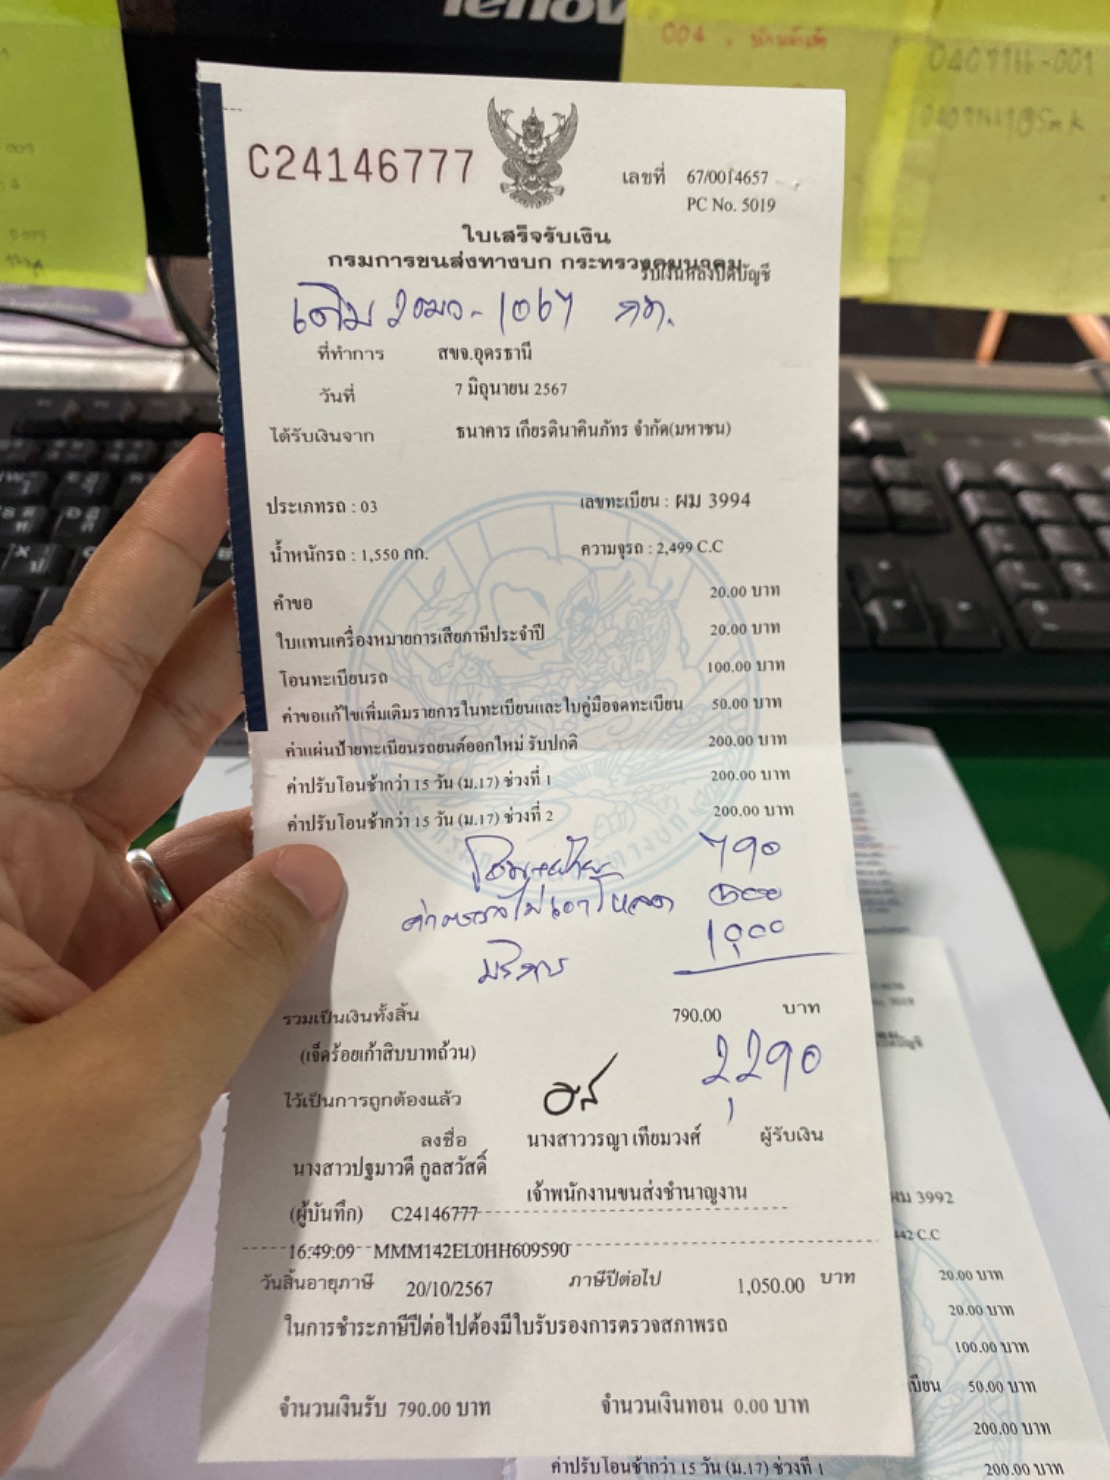 lenovo
004
040
C24146777
เลขที่ 67/0014657
PC No. 5019
ใบเสร็จรับเงิน
กรมการขนส่งทางบก กระทรวงคมนาคม
รับเงินหลังปิดบัญชี
เดิม 2ฒว-1067 กท.
ที่ทำการ สขจ.อุดรธานี
วันที่ 7 มิถุนายน 2567
ได้รับเงินจาก ธนาคาร เกียรตินาคินภัทร จำกัด(มหาชน)
ประเภทรถ : 03 เลขทะเบียน : ผม 3994
น้ำหนักรถ : 1,550 กก. ความจุรถ : 2,499 C.C
คำขอ 20.00 บาท
ใบแทนเครื่องหมายการเสียภาษีประจำปี 20.00 บาท
โอนทะเบียนรถ 100.00 บาท
ค่าขอแก้ไขเพิ่มเติมรายการในทะเบียนและใบคู่มือจดทะเบียน 50.00 บาท
ค่าแผ่นป้ายทะเบียนรถยนต์ออกใหม่ รับปกติ 200.00 บาท
ค่าปรับโอนช้ากว่า 15 วัน (ม.17) ช่วงที่ 1 200.00 บาท
ค่าปรับโอนช้ากว่า 15 วัน (ม.17) ช่วงที่ 2 200.00 บาท
790
ค่าตรวจไม่เอาโหลด 500
บริการ 1,000
รวมเป็นเงินทั้งสิ้น 790.00 บาท
(เจ็ดร้อยเก้าสิบบาทถ้วน)
2,290
ไว้เป็นการถูกต้องแล้ว
ลงชื่อ นางสาววรญา เทียมวงศ์ ผู้รับเงิน
นางสาวปฐมาวดี กูลสวัสดิ์
เจ้าพนักงานขนส่งชำนาญงาน
(ผู้บันทึก) C24146777
16:49:09 MMM142EL0HH609590
วันสิ้นอายุภาษี 20/10/2567 ภาษีปีต่อไป 1,050.00 บาท
ในการชำระภาษีปีต่อไปต้องมีใบรับรองการตรวจสภาพรถ
จำนวนเงินรับ 790.00 บาท จำนวนเงินทอน 0.00 บาท
ผม 3992
442 C.C
20.00 บาท
20.00 บาท
100.00 บาท
เบียน 50.00 บาท
200.00 บาท
ค่าปรับโอนช้ากว่า 15 วัน (ม.17) ช่วงที่ 1 200.00 บาท